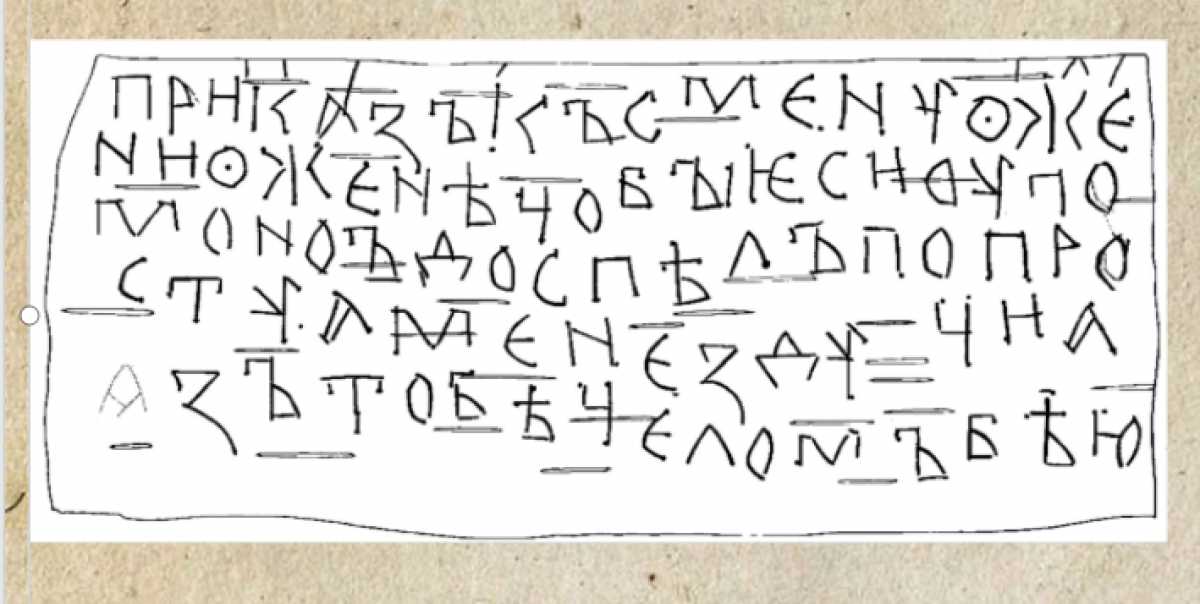 ПРИКАЗЪКЪСМЕНУОЖЕ
НИОЖЕНѢЧОБЪІѤСИОУПО
МОНОЪДОСПѢЛЪПОПРО
СТУАМЕНЕЗДУЧИА
АЗЪТОБѢЧЕЛОМЪБѢЮ